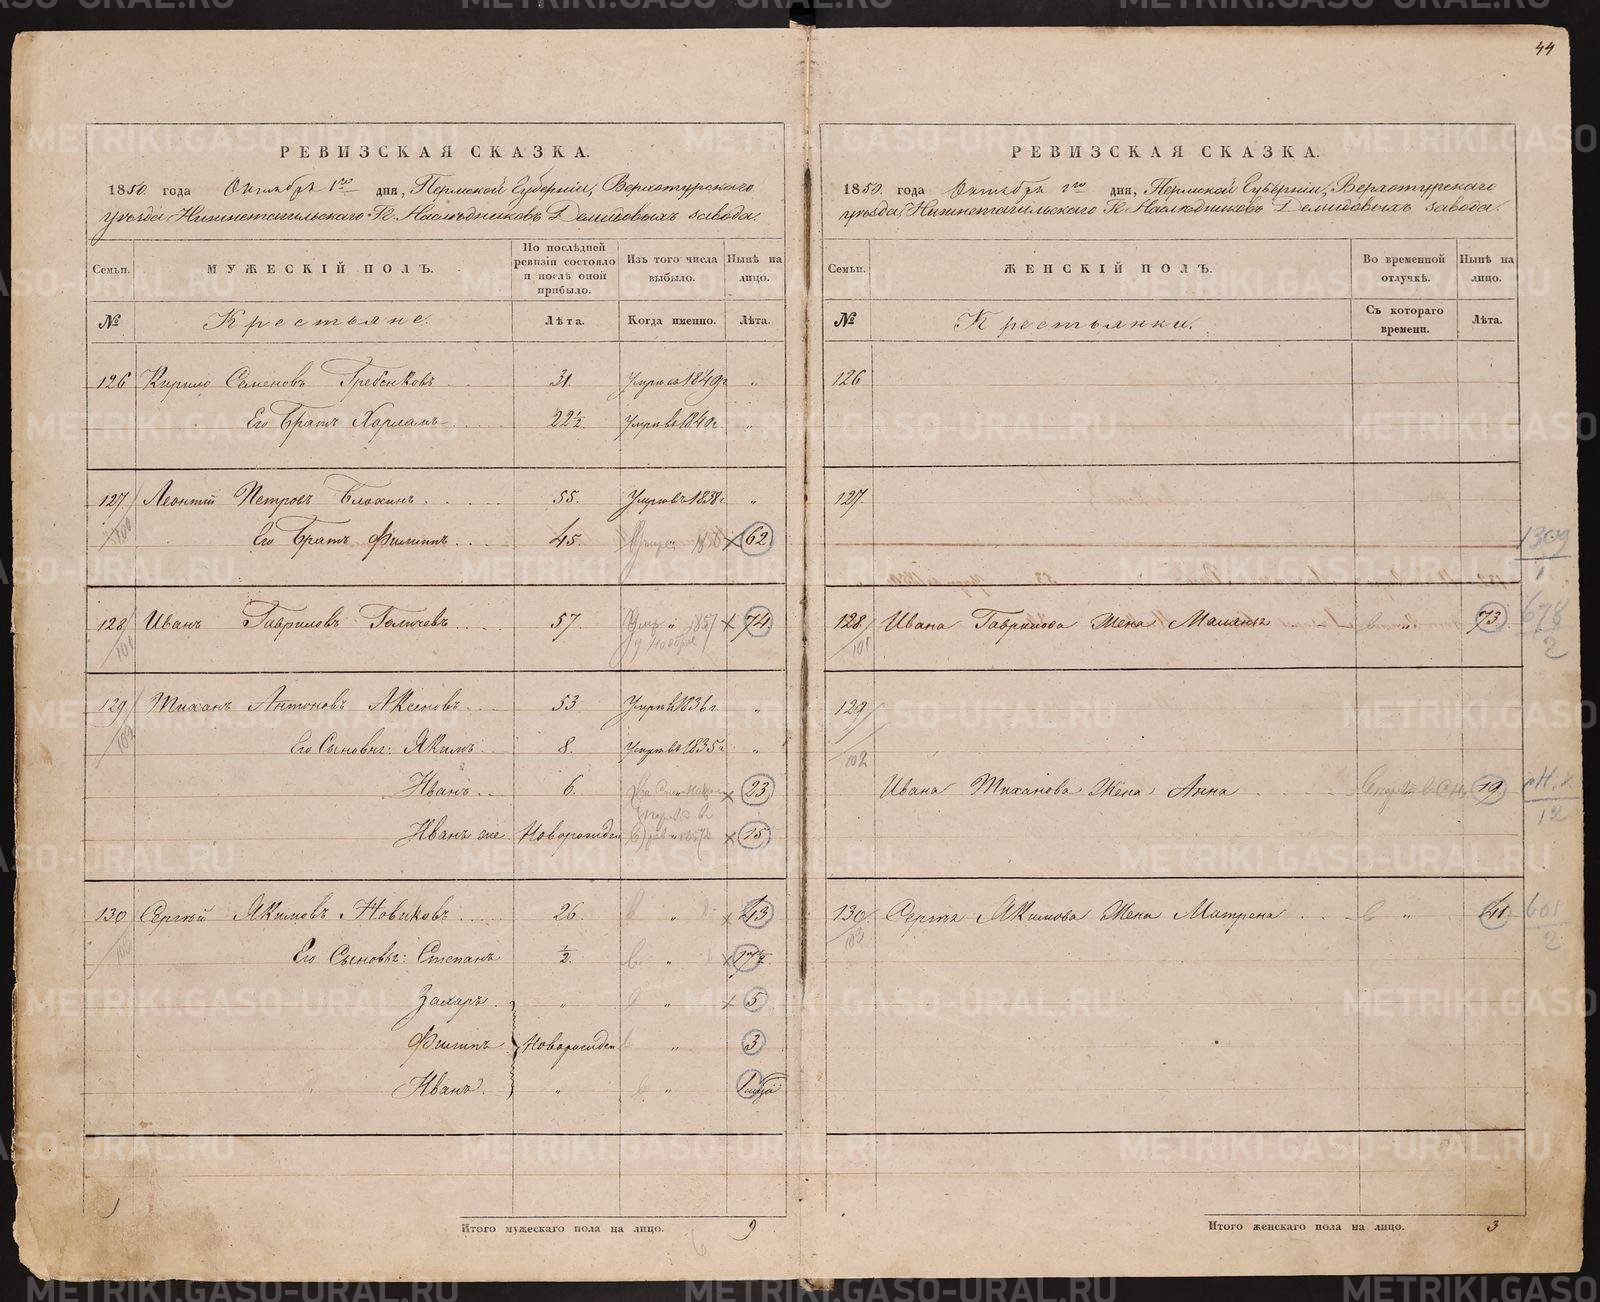 44
РЕВИЗСКАЯ СКАЗКА.
1850 года Октября 1го дня, Пермской Губернии, Верхотурского
уезда Нижнетагильского Гг. Наследниковъ Демидовыхъ завода.
Семьи. МУЖЕСКІЙ ПОЛЪ. По послѣдней ревизіи состояло и послѣ оной прибыло. Изъ того числа выбыло. Нынѣ на лицо.
№ Крестьяне. Лѣта. Когда именно. Лѣта.
126 Кирило Семеновъ Гребенковъ 31. Умре въ 1849г "
Его Братъ Харламъ 22½ Умре въ 1840г "
127 Леонтій Петровъ Блохинъ 55. Умре въ 1838г "
100 Его Братъ Филиппъ 45. 1858 62
128 Иванъ Гавриловъ Голичевъ 57. " 1857 74
101
129 Тиханъ Антоновъ Аксеновъ 53 Умре въ 1836г. "
102 Его Сыновья: Якимъ 8. Умре въ 1835г "
Иванъ 6. 23
Иванъ же Новорожден 15
130 Сергѣй Якимовъ Новиковъ 26. " 43
103 Его Сыновья: Степанъ ½ " 17½
Захаръ " " 5
Филипъ Новорожден " 3
Иванъ " " 1
Итого мужескаго пола на лицо. 9
6
РЕВИЗСКАЯ СКАЗКА.
1850 года Октября 1го дня, Пермской Губернии, Верхотурского
уезда, Нижнетагильского Гг. Наследниковъ Демидовыхъ завода.
Семьи. ЖЕНСКІЙ ПОЛЪ. Во временной отлучкѣ. Нынѣ на лицо.
№ Крестьянки. Съ котораго времени. Лѣта.
126
127.
128 Ивана Гаврилова Жена Маланья " 73
101
678
2
129
102
Ивана Тиханова Жена Анна 19
12
130 Сергѣя Якимова Жена Матрена " 41
103
601
2
Итого женскаго пола на лицо. 3
METRIKI.GASO-URAL.RU